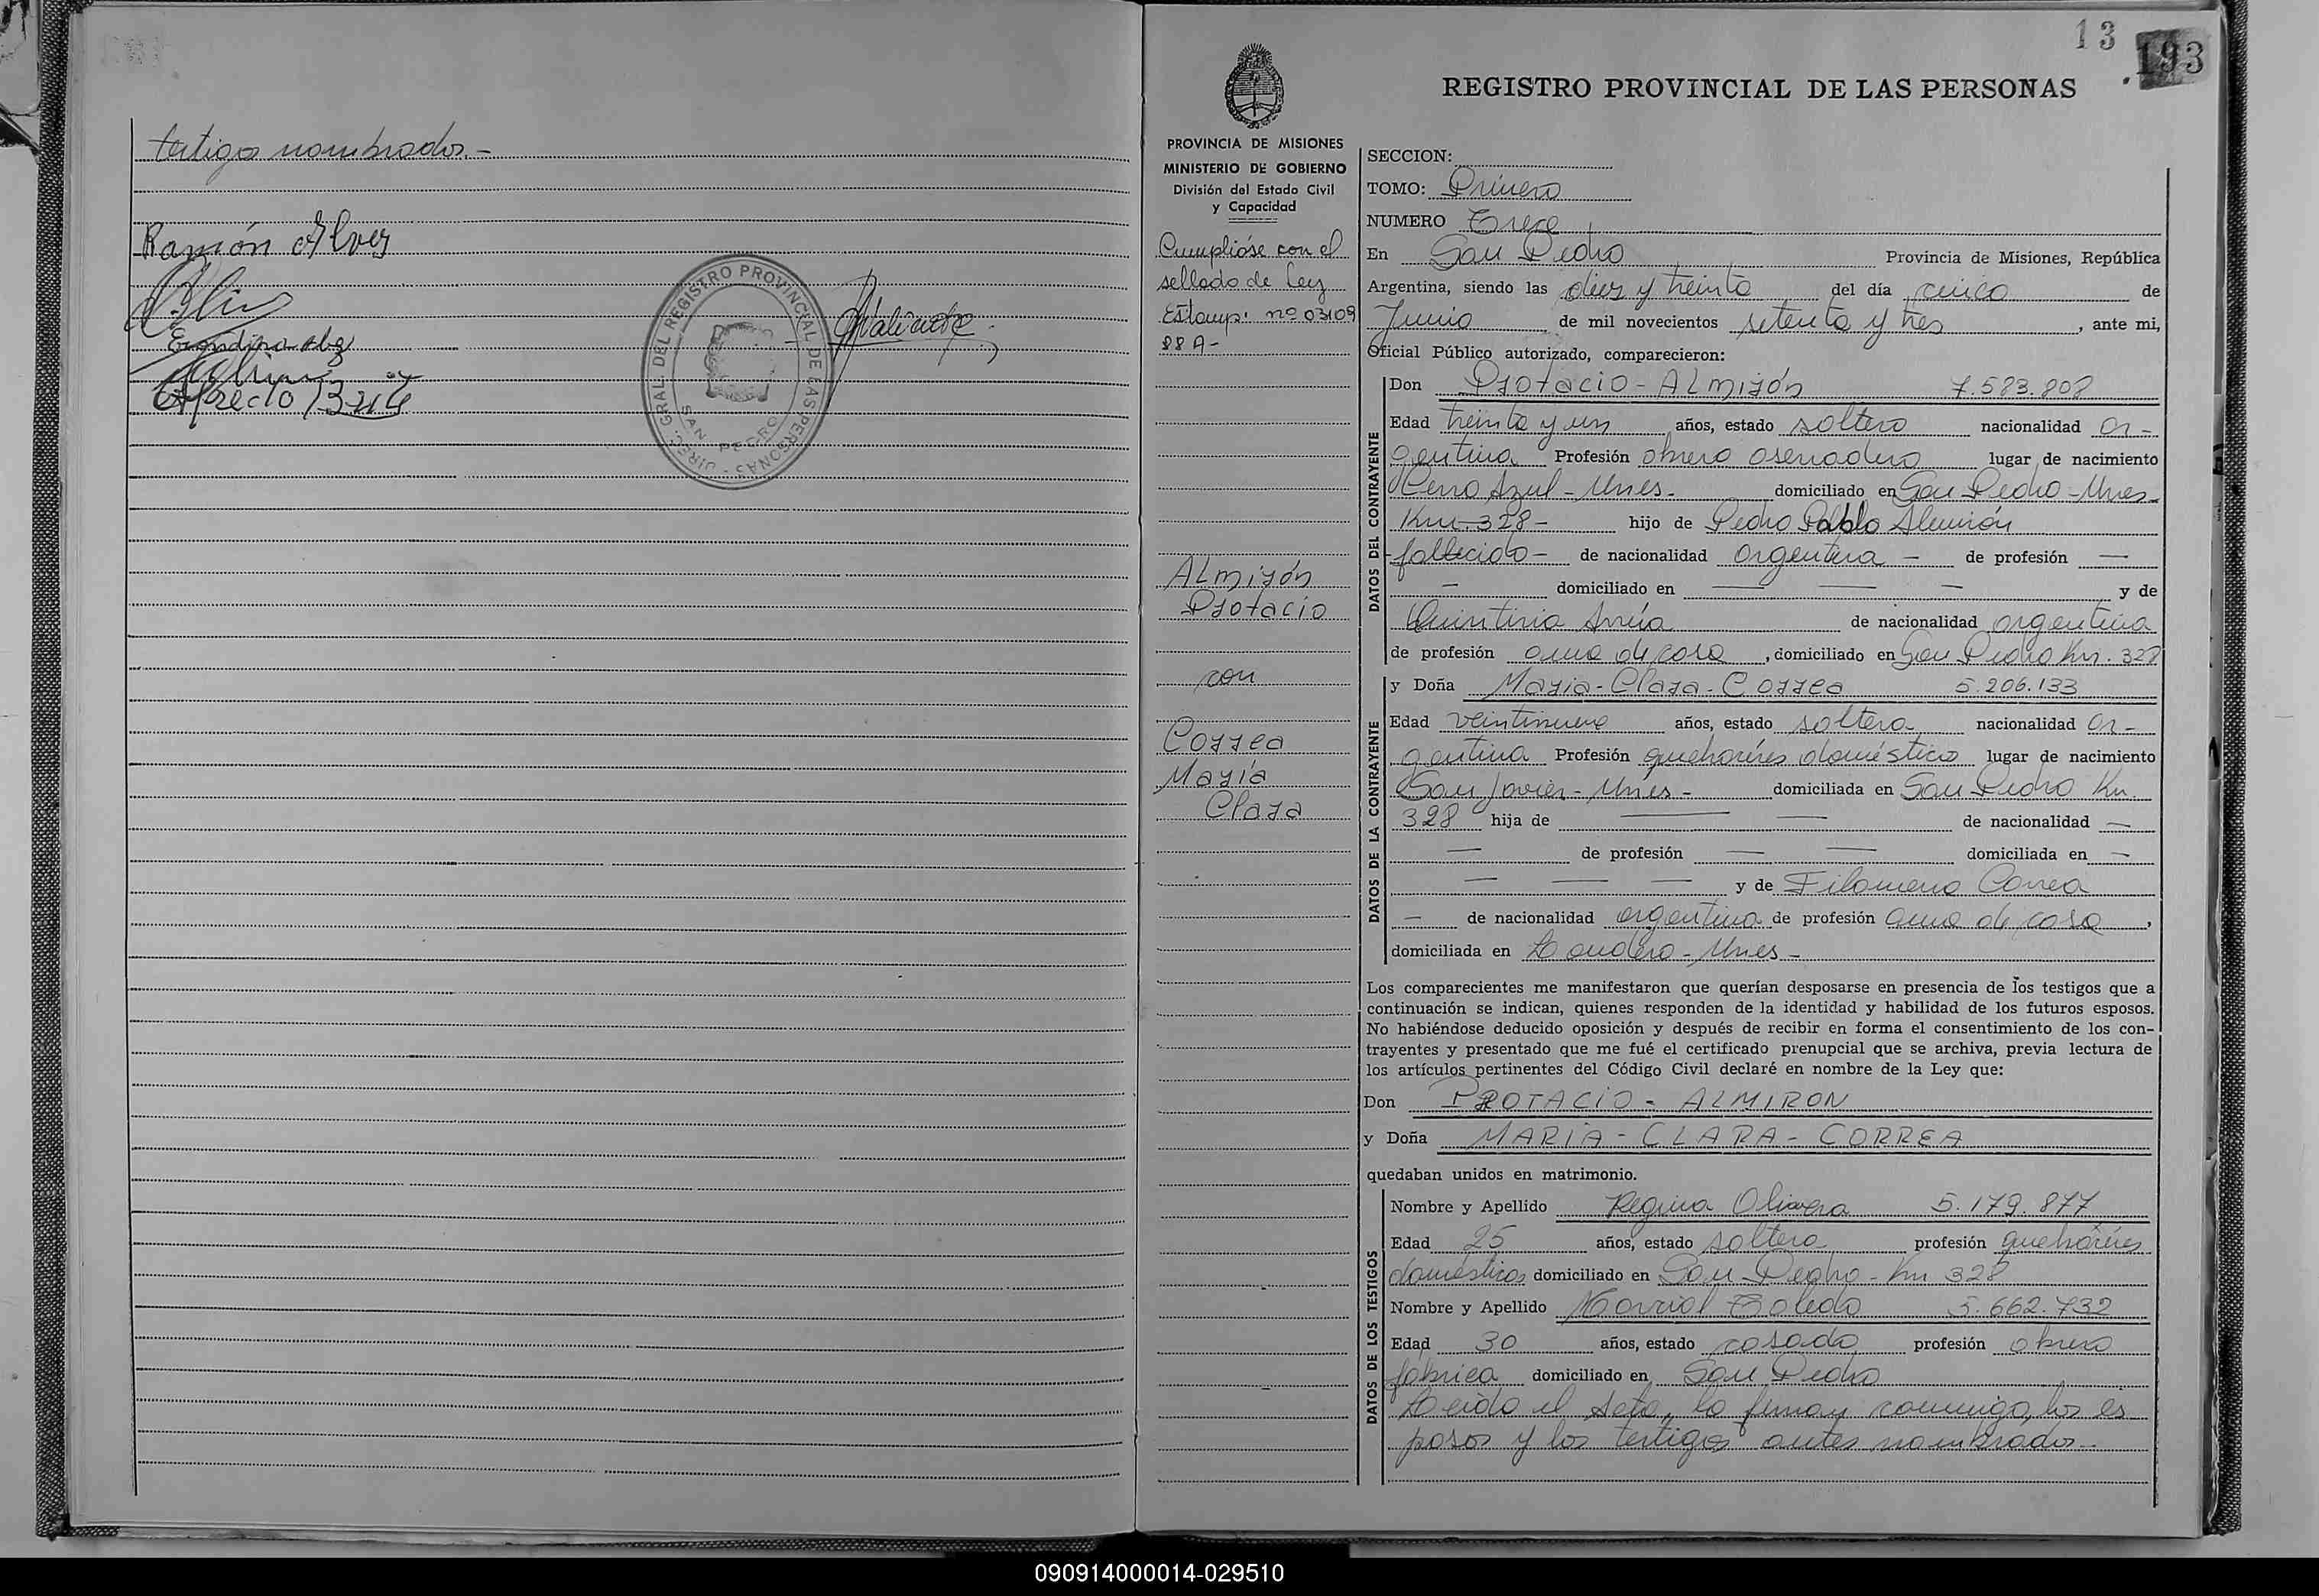 testigos nombrados.-
Ramón Alvez
Alfredo
DIREC. GRAL. DEL REGISTRO PROVINCIAL DE LAS PERSONAS
SAN PEDRO
13
193
REGISTRO PROVINCIAL DE LAS PERSONAS
PROVINCIA DE MISIONES
MINISTERIO DE GOBIERNO
División del Estado Civil
y Capacidad
Cumplióse con el
sellado de Ley
Estamp. nº 03109
88 A-
Almirón
Protacio
con
Correa
María
Clara
SECCION:
TOMO: Primero
NUMERO Trece
En San Pedro Provincia de Misiones, República
Argentina, siendo las diez y treinta del día cinco de
Junio de mil novecientos setenta y tres, ante mi,
Oficial Público autorizado, comparecieron:
DATOS DEL CONTRAYENTE
Don Protacio - Almirón 7.583.808
Edad treinta y un años, estado soltero nacionalidad ar-
gentina Profesión obrero aserradero lugar de nacimiento
Cerro Azul - Mnes. domiciliado en San Pedro - Mnes-
Km 328 - hijo de Pedro Pablo Almirón
fallecido - de nacionalidad argentina - de profesión —
— domiciliado en — — — y de
Quintina de nacionalidad argentina
de profesión ama de casa, domiciliado en San Pedro Km. 328
DATOS DE LA CONTRAYENTE
y Doña Maria - Clara - Correa 5.206.133
Edad veintinueve años, estado soltera nacionalidad ar-
gentina Profesión quehaceres doméstico lugar de nacimiento
San Javier - Mnes - domiciliada en San Pedro Km.
328 hija de — — de nacionalidad —
— de profesión — — domiciliada en —
— — — y de Filomena Correa
— de nacionalidad argentina de profesión ama de casa,
domiciliada en - Mnes -
Los comparecientes me manifestaron que querían desposarse en presencia de los testigos que a
continuación se indican, quienes responden de la identidad y habilidad de los futuros esposos.
No habiéndose deducido oposición y después de recibir en forma el consentimiento de los con-
trayentes y presentado que me fué el certificado prenupcial que se archiva, previa lectura de
los artículos pertinentes del Código Civil declaré en nombre de la Ley que:
Don PROTACIO - ALMIRON
y Doña MARIA - CLARA - CORREA
quedaban unidos en matrimonio.
DATOS DE LOS TESTIGOS
Nombre y Apellido Regina Olivera 5.179.877
Edad 25 años, estado soltera profesión quehaceres
domésticos domiciliado en San Pedro - Km 328
Nombre y Apellido Toledo 5.662.732
Edad 30 años, estado casado profesión obrero
fábrica domiciliado en San Pedro
Leído el Acta, la firman conmigo, los es
posos y los testigos antes nombrados.-
090914000014-029510